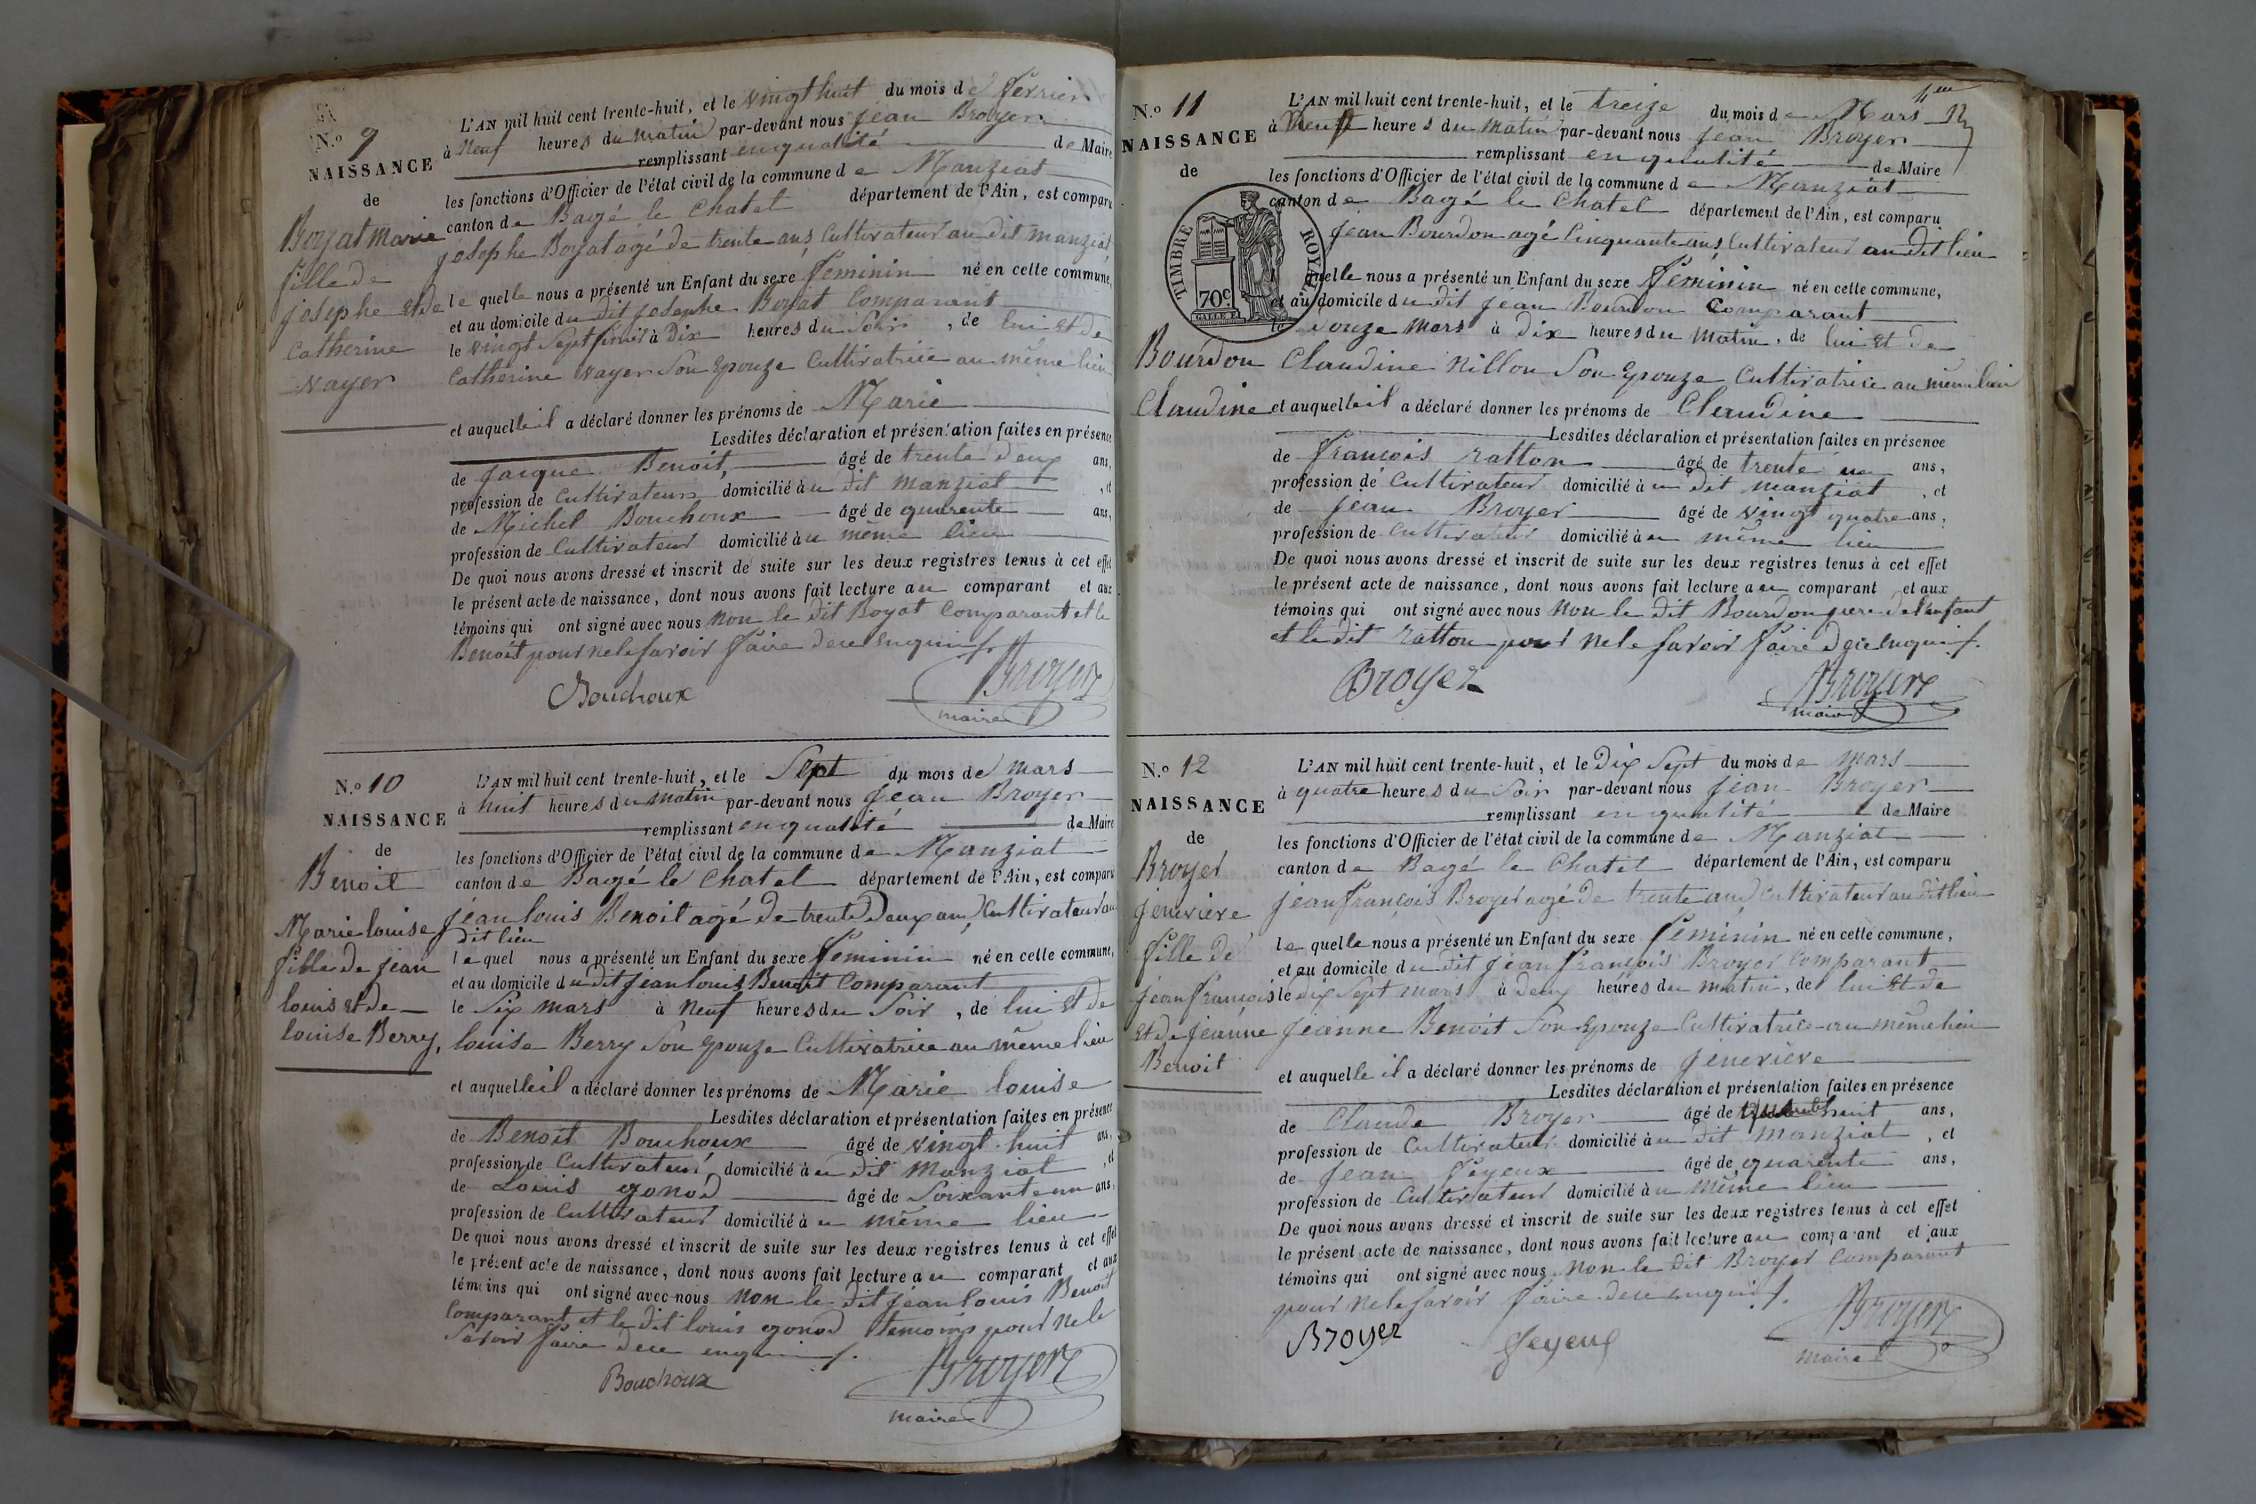 N.º 9
NAISSANCE
de
Boyat Marie
fille de
josephe et de
Catherine
Vayer
L'AN mil huit cent trente-huit, et le vingt huit du mois de fevrier
à Neuf heures du matin par-devant nous jean Broyer
remplissant en qualité de Maire
les fonctions d'Officier de l'état civil de la commune de Manziat
canton de Bagé le Chatel département de l'Ain, est comparu
josephe Boyat agé de trente ans Cultivateur au dit manziat
le quel nous a présenté un Enfant du sexe feminin né en cette commune,
et au domicile du dit josephe Boyat Comparant
le vingt sept à Dix heures du Soir, de lui et de
Catherine Vayer Son Epouze Cultivatrice au même lieu
et auquelle il a déclaré donner les prénoms de Marie
Lesdites déclaration et présentation faites en présence
de jacque Benoit, âgé de trente deux ans,
profession de Cultivateur domicilié au dit manziat, et
de Michel Bouchoux âgé de quarente ans,
profession de Cultivateur domicilié au même lieu
De quoi nous avons dressé et inscrit de suite sur les deux registres tenus à cet effet
le présent acte de naissance, dont nous avons fait lecture au comparant et aux
témoins qui ont signé avec nous non le dit Boyat Comparant et le
Benoit pour ne le savoir faire de ce enquis f.
Bouchoux
Broyer
maire
N.º 10
NAISSANCE
de
Benoit
Marie louise
fille de jean
louis et de
louise Berry,
L'AN mil huit cent trente-huit, et le Sept du mois de mars
à huit heures du matin par-devant nous jean Broyer
remplissant en qualité de Maire
les fonctions d'Officier de l'état civil de la commune de Manziat
canton de Bagé le Chatel département de l'Ain, est comparu
jean louis Benoit agé de trente Deux ans Cultivateur au
dit lieu
le quel nous a présenté un Enfant du sexe feminin né en cette commune,
et au domicile du dit jean louis Benoit Comparant
le Six mars à neuf heures du Soir, de lui et de
louise Berry Son epouze Cultivatrice au même lieu
et auquelle il a déclaré donner les prénoms de Marie louise
Lesdites déclaration et présentation faites en présence
de Benoit Bouchoux âgé de vingt huit ans,
profession de Cultivateur domicilié au dit manziat, et
de Louis gonod âgé de Soixante un ans,
profession de Cultivateur domicilié au même lieu
De quoi nous avons dressé et inscrit de suite sur les deux registres tenus à cet effet
le présent acte de naissance, dont nous avons fait lecture au comparant et aux
témoins qui ont signé avec nous non le dit jean louis Benoit
Comparant et le dit louis gonod temoins pour ne le
savoir faire de ce enquis f.
Bouchoux
Broyer
maire
N.º 11
NAISSANCE
de
TIMBRE ROYAL
70c.
Bourdon
Claudine
L'AN mil huit cent trente-huit, et le treize du mois de Mars
à Neuf heures du matin par-devant nous jean Broyer
remplissant en qualité de Maire
les fonctions d'Officier de l'état civil de la commune de Manziat
canton de Bagé le Chatel département de l'Ain, est comparu
jean Bourdon agé Cinquante ans Cultivateur au dit lieu
quelle nous a présenté un Enfant du sexe feminin né en cette commune,
et au domicile du dit jean Bourdon Comparant
le Douze mars à Dix heures du matin, de lui et de
Claudine Nillon Son Epouze Cultivatrice au même lieu
et auquelle il a déclaré donner les prénoms de Claudine
Lesdites déclaration et présentation faites en présence
de françois ratton âgé de trente un ans,
profession de Cultivateur domicilié au dit manziat, et
de jean Broyer âgé de vingt quatre ans,
profession de Cultivateur domicilié au même lieu
De quoi nous avons dressé et inscrit de suite sur les deux registres tenus à cet effet
le présent acte de naissance, dont nous avons fait lecture au comparant et aux
témoins qui ont signé avec nous non le dit Bourdon pere de l'enfant
et le dit ratton pour ne le savoir faire de ce enquis f.
Broyer
Broyer
maire
N.º 12
NAISSANCE
de
Broyer
jenevieve
fille de
jean françois
et de jeanne
Benoit
L'AN mil huit cent trente-huit, et le Dix Sept du mois de mars
à quatre heures du Soir par-devant nous jean Broyer
remplissant en qualité de Maire
les fonctions d'Officier de l'état civil de la commune de Manziat
canton de Bagé le Chatel département de l'Ain, est comparu
jean françois Broyer agé de trente ans Cultivateur au dit lieu
le quelle nous a présenté un Enfant du sexe feminin né en cette commune,
et au domicile du dit jean françois Broyer Comparant
le dix Sept mars à Deux heures du matin, de lui et de
jeanne Benoit Son Epouze Cultivatrice au même lieu
et auquelle il a déclaré donner les prénoms de jenevieve
Lesdites déclaration et présentation faites en présence
de Claude Broyer âgé de huit ans,
profession de Cultivateur domicilié au dit manziat, et
de jean feyeux âgé de quarente ans,
profession de Cultivateur domicilié au même lieu
De quoi nous avons dressé et inscrit de suite sur les deux registres tenus à cet effet
le présent acte de naissance, dont nous avons fait lecture au comparant et aux
témoins qui ont signé avec nous non le dit Broyer Comparant
pour ne le savoir faire de ce enquis f.
Broyer
feyeux
Broyer
maire